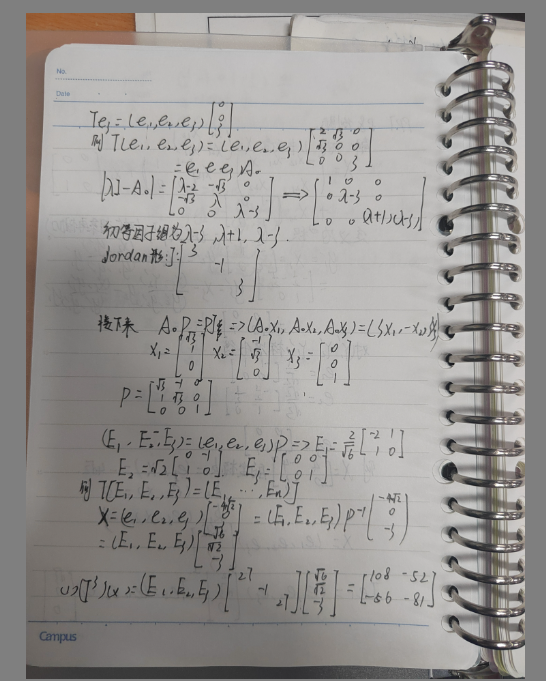 No.
Date
Te₃ = (e₁, e₂, e₃) [0; 0; 3]
则 T(e₁, e₂, e₃) = (e₁, e₂, e₃) [2 √3 0; √3 0 0; 0 0 3]
= e₁ e₂ e₃ A₀
|λI-A₀| = [λ-2 -√3 0; -√3 λ 0; 0 0 λ-3] ⟹ [1 0 0; 0 λ-3 0; 0 0 (λ+1)(λ-3)]
初等因子组为 λ-3, λ+1, λ-3.
Jordan形: J: [3; -1; 3]
接下来 A₀P = PJ => (A₀X₁, A₀X₂, A₀X₃) = (3X₁, -X₂, 3X₃)
X₁ = [√3; 1; 0] X₂ = [-1; √3; 0] X₃ = [0; 0; 1]
P = [√3 -1 0; 1 √3 0; 0 0 1]
(E₁, E₂, E₃) = (e₁, e₂, e₃) P => E₁ = 2/√6 [-2 1; 1 0]
E₂ = √2 [0 -1; 1 0] E₃ = [0 0; 0 1]
则 T(E₁, E₂, E₃) = (E₁, ⋯, En) J
X = (e₁, e₂, e₃) [-4√2; 0; -3] = (E₁, E₂, E₃) P⁻¹ [-4√2; 0; -3]
= (E₁, E₂, E₃) [-√6; √2; -3]
(T³)(x) = (E₁, E₂, E₃) [27; -1; 27] [√6; √2; -3] = [108 -52; -56 -81]
Campus